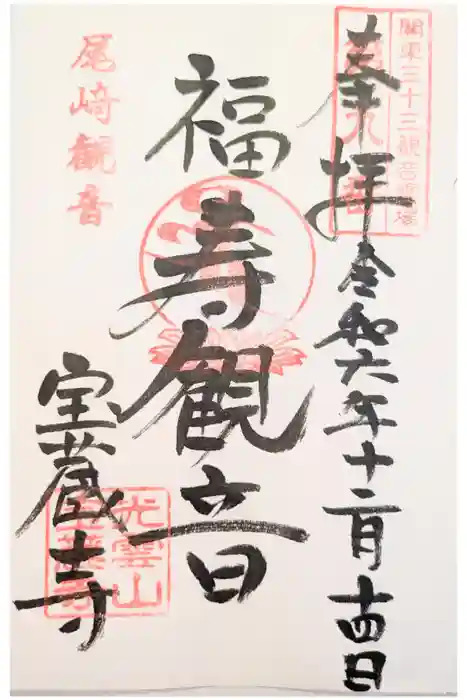 関東三十三観音霊場
奉拝 令和六年十二月十四日
福寿観音
尾崎観音
宝蔵寺
光雲山